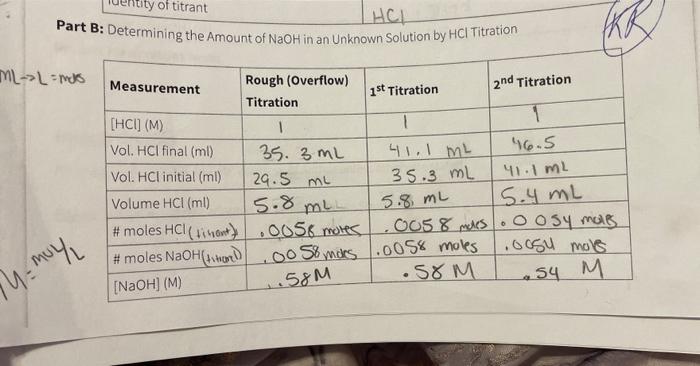 Identity of titrant HCl
Part B: Determining the Amount of NaOH in an Unknown Solution by HCl Titration
KR
mL->L=mols
Measurement Rough (Overflow) Titration 1st Titration 2nd Titration
[HCl] (M) 1 1 1
Vol. HCl final (ml) 35.3 mL 41.1 mL 46.5
Vol. HCl initial (ml) 29.5 mL 35.3 mL 41.1 mL
Volume HCl (ml) 5.8 mL 5.8 mL 5.4 mL
# moles HCl (titrant) .0058 moles .0058 moles .0054 mols
# moles NaOH (titrand) .0058 moles .0058 moles .0054 moles
[NaOH] (M) .58 M .58 M .54 M
M=mol/L